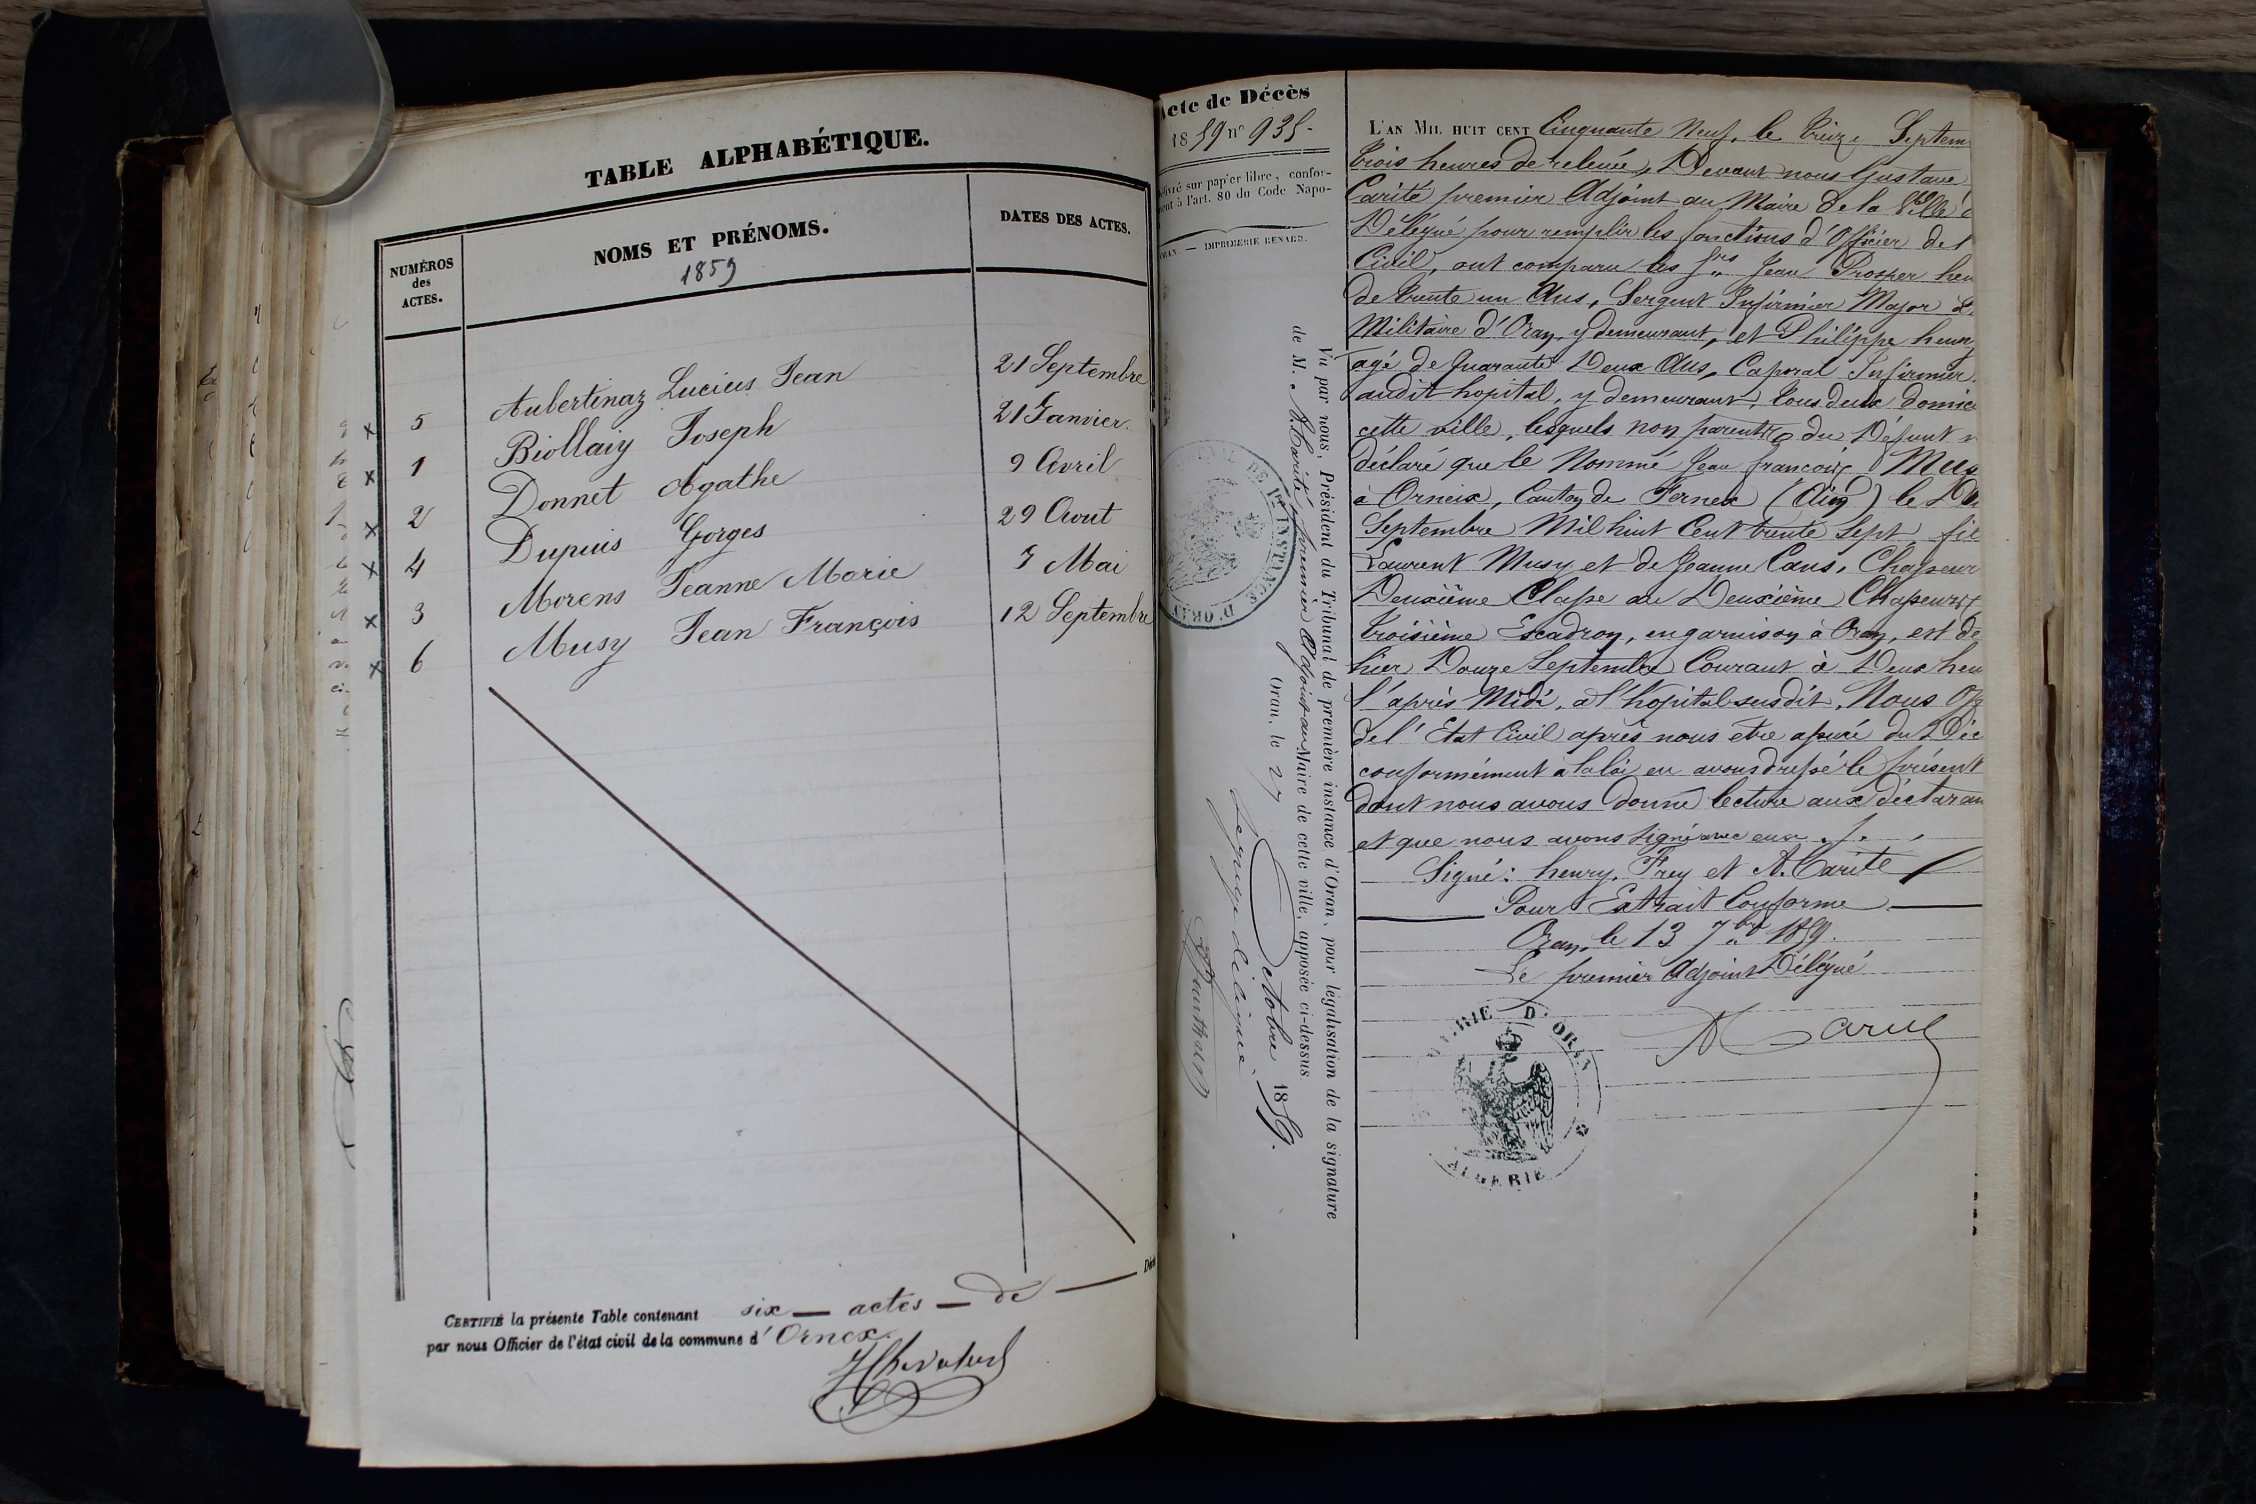 TABLE ALPHABÉTIQUE.
NUMÉROS
des
ACTES.
NOMS ET PRÉNOMS.
1859
DATES DES ACTES.
5 Aubertinaz Lucius Jean 21 Septembre
1 Biollaiy Joseph 21 Janvier
2 Donnet Agathe 9 Avril
4 Dupuis Gorges 29 Aout
3 Morens Jeanne Marie 5 Mai
6 Musy Jean François 12 Septembre
CERTIFIÉ la présente Table contenant six — actes — de — Décès
par nous Officier de l'état civil de la commune d' Ornex
Acte de Décès
1859 n° 935.
livré sur papier libre, confor-
ment à l'art. 80 du Code Napo-
ORAN. — IMPRIMERIE RENARD.
Vu par nous, Président du Tribunal de première instance d'Oran, pour légalisation de la signature
de M. A. Carité, premier Adjoint au Maire de cette ville, apposée ci-dessus
Oran, le 27 Octobre 1859.
Le juge délégué
INSTANCE D'ORAN
L'AN MIL HUIT CENT Cinquante Neuf, le treize Septem
trois heures de relevée, Devant nous Gustave
Carité premier Adjoint au Maire de la Ville d
Délégué pour remplir les fonctions d'Officier de l
Civil, ont comparu les Srs Jean Prosper hen
de trente un Ans, Sergent Infirmier Major
Militaire d'Oran, y demeurant, et Philippe henry
agé de quarante Deux Ans, Caporal Infirmier
audit hopital, y demeurant, tous deux domici
cette ville, lesquels non parents du Défunt
déclaré que le Nommé Jean françois Mus
à Orneix, Canton de Fernex (Ain) le Di
Septembre Mil huit Cent trente Sept, fil
Laurent Musy et de Jeanne Caus, Chasseur
Deuxième Classe au Deuxième Chasseurs
troisième Escadron, en garnison à Oran, est dé
hier Douze Septembre Courant à Deux heu
l'après Midi, à l'hopital susdit. Nous Off
de l'Etat Civil après nous etre assuré du Déc
conformément à la loi en avons dressé le présent
dont nous avons donné lecture aux déclaran
et que nous avons signé avec eux
Signé: henry, Frey et A. Carité
Pour Extrait Conforme
Oran, le 13 7bre 1859.
Le premier Adjoint Délégué
A Carité
MAIRIE D'ORAN
ALGERIE